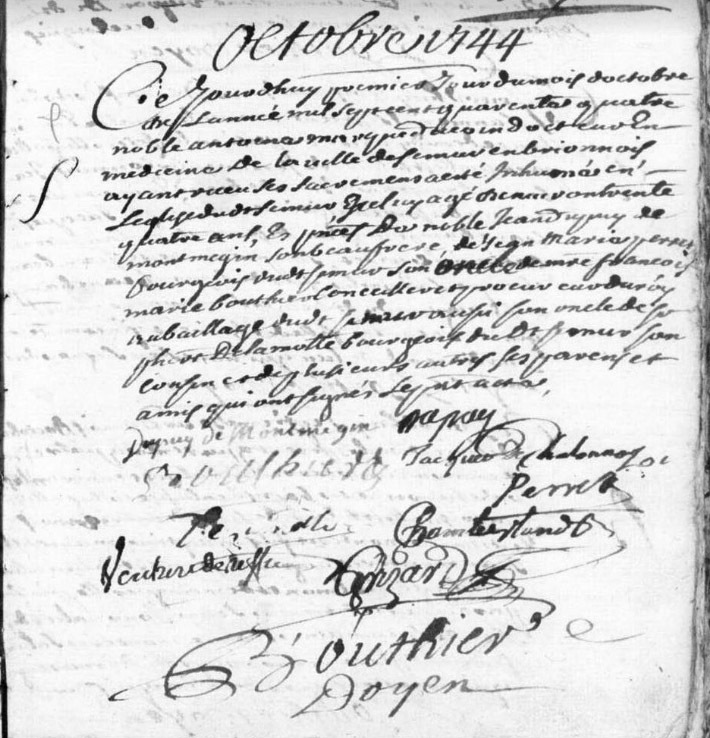 Octobre 1744
Ce Jourdhuy premier Jour du mois doctobre
de L'année mil sept cent quarente quatre
noble antoine marque docteur En
medecine De la ville de semur en brionnois
ayant receu ses sacremens a eté Inhumé en
Leglise dudt semur Agé Denviron trente
quatre ans, Es pnces De noble Jean Dupuy de
montmegin son beaufrere, de Jean Marie perret
bourgeois dudt semur son oncle de mre francois
marie bouthier Conceiller et procureur du roy
au bailliage dudt semur aussi son oncle de
De lamotte bourgeois du dt semur son
cousin et de plusieurs autres ses parens et
amis qui ont signés Le pnt acte,
Dupuy de Montmegin
Bouthier
Jacques De Chalonnay
Perret
Perret
Chambertand
Verchere de
Grizard
Bouthier
Doyen